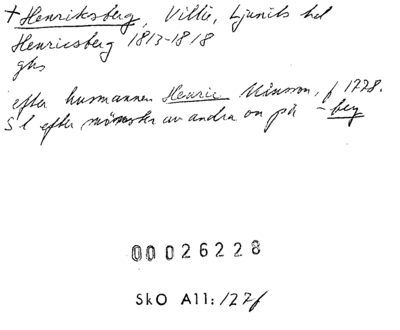 + Henriksberg, Villie, Ljunits hd
Henricsberg 1813-1818
ghs
efter husmannen Henric Månsson, f 1778.
Sl efter mönster av andra on på -berg
00026228
SkO All: 127f